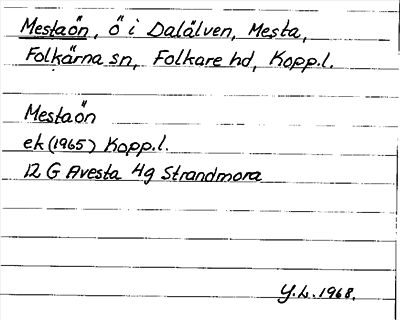 Mestaön, ö i Dalälven, Mesta,
Folkärna sn, Folkare hd, Kopp.l.
Mestaön
ek (1965) Kopp.l.
12 G Avesta 4g Strandmora
Y.L. 1968.